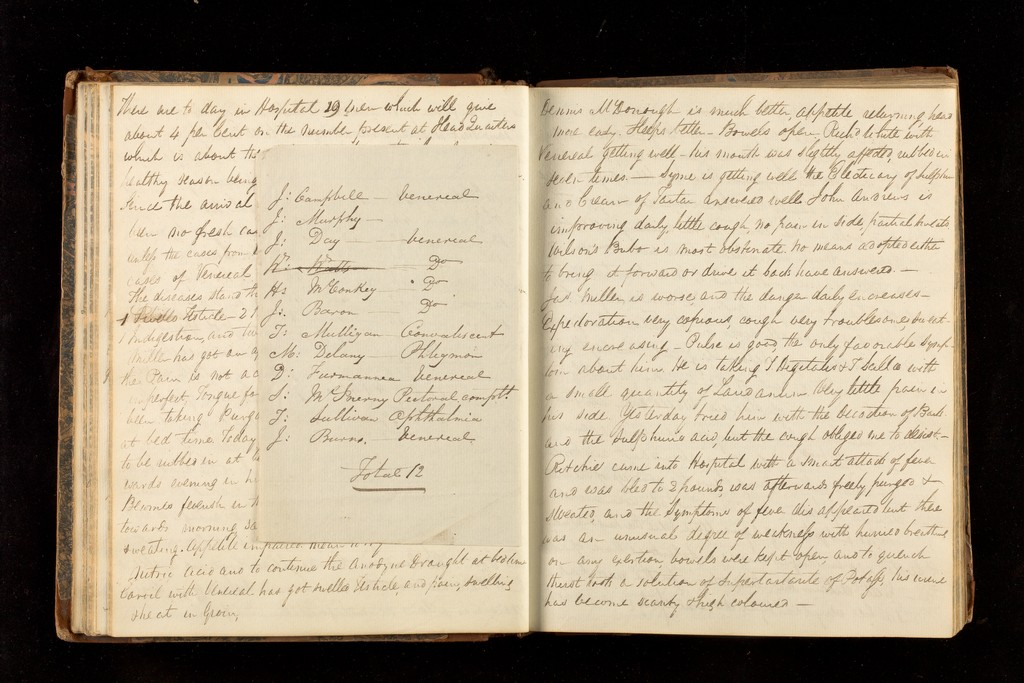 There are to day in Hospital 29 Men which will give
about 4 per Cent on the number present at Head Quarters
which is about the
healthy season being
Since the arrival
been no fresh cas
cases of Venereal
The diseases stand th
1 Swelled Testicle - 2 I
1 Indigestion, and
has got an
the Pain is not a
imperfect Tongue fo
been taking Purga
at bed time Today
to be rubbed in at b
wards evening in h
Becomes feverish in th
towards morning
sweating. Appetite impaired
Nitric Acid and to continue the Anodyne Draught at bedtime
with Venereal has got swelled Testicle, and pain, swelling,
heat in Groin,
J: Campbell — Venereal
J: Murphy —
J: Day — Venereal
W: Watts — Do
H: McConkey — Do
J: Baron — Do
T: Mulligan — Convalescent
M: Delany — Phlegmon
D: Venereal
S: Pectoral complt.
T: Sullivan Ophthalmia
J: Burns. — Venereal
Total 12
Dennis McDonough is much better, appetite returning, head
more easy, Sleeps better — Bowels open, Rich'd White with
Venereal getting well — his mouth was slightly affected, rubbed in
seven times. — Syme is getting well the Electuary of Sulphur
and Cream of Tartar answered well John Andrews is
improving daily, little cough, no pain in side, partial sweats
Wilson's Bubo is most obstinate no means adopted either
to bring it forward or drive it back have answered. —
Jas Miller is worse and the danger daily encreases —
Expectoration very copious, cough very troublesome, sweat-
ing encreasing — Pulse is good the only favorable symp-
tom about him. He is taking T Digitalis & T Scilla with
a small quantity of Laudanum Very little pain in
his side Yesterday tried him with the decoction of Bark
and the Sulphuric acid, but the cough obliged me to desist —
Ritchie came into Hospital with a smart attack of fever
and was bled to 3 pounds, was afterwards freely purged &
sweated, and the symptoms of fever disappeared but there
was an unusual degree of weakness with hurried breathing
on any exertion, bowels were kept open, and to quench
thirst took a solution of Supertartarite of Potass, his urine
has become scanty & high coloured —